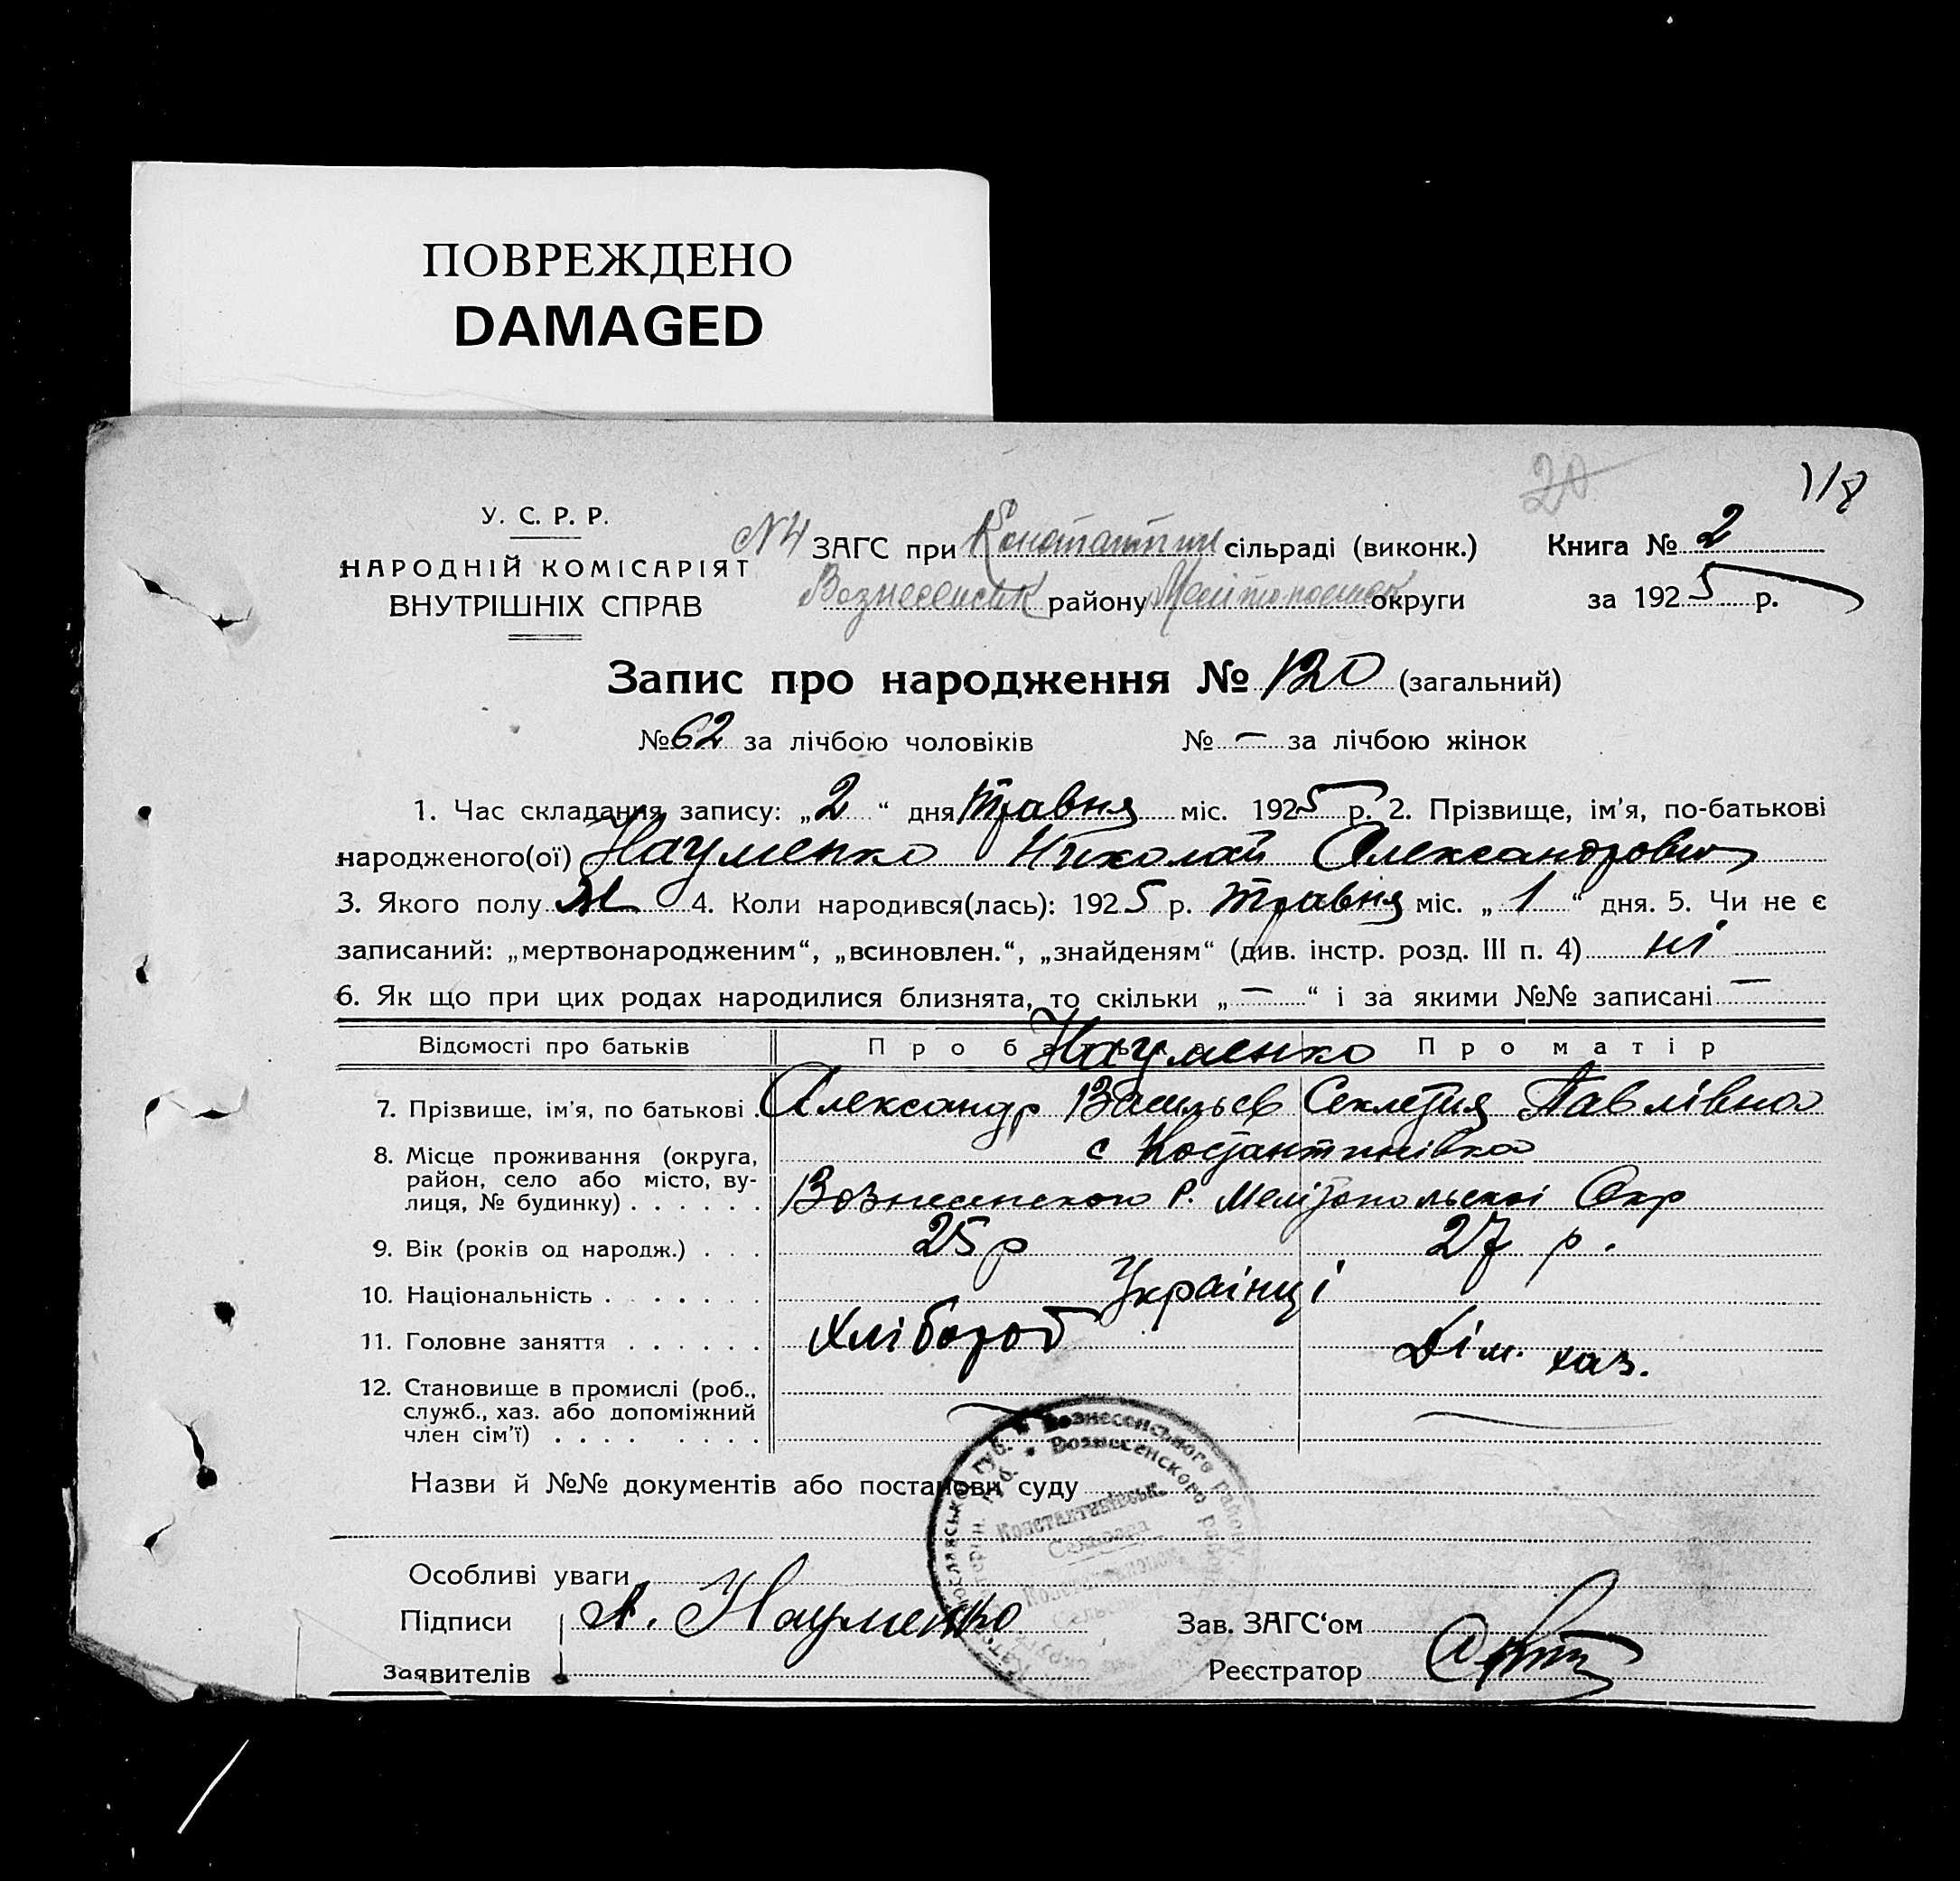 ПОВРЕЖДЕНО
DAMAGED
20
118
У. С. Р. Р.
НАРОДНІЙ КОМІСАРІЯТ
ВНУТРІШНІХ СПРАВ
N4 ЗАГС при Константин сільраді (виконк.) Книга № 2
Вознесенськ району Мелітопольськ округи за 1925 р.
Запис про народження № 120 (загальний)
№ 62 за лічбою чоловіків № — за лічбою жінок
1. Час складання запису: „2“ дня травня міс. 1925 р. 2. Прізвище, ім'я, по-батькові
народженого(ої) Науменко Николай Александрович
3. Якого полу М 4. Коли народився(лась): 1925 р. травня міс. „1“ дня. 5. Чи не є
записаний: „мертвонародженим“, „всиновлен.“, „знайденям“ (див. інстр. розд. III п. 4) ні
6. Як що при цих родах народилися близнята, то скільки „—“ і за якими №№ записані —
Відомості про батьків Про батька Про матір
Науменко
7. Прізвище, ім'я, по батькові . Александр Васильев Секлетия Павлівна
8. Місце проживання (округа, район, село або місто, вулиця, № будинку) . . . . . . с Костантинівка
Вознесенского р. Мелітопольскоі Окр
9. Вік (років од народж.) . . . 25 р 27 р.
10. Національність . . . . . . . Українці
11. Головне заняття . . . . . . Хлібороб Дім. хаз.
12. Становище в промислі (роб., служб., хаз. або допоміжний член сім'ї) . . . . . . . . — —
Назви й №№ документів або постанови суду
Особливі уваги
Підписи А. Науменко Зав. ЗАГС‘ом
Заявителів Реєстратор
Вознесенського району
Вознесенского
Константинівськ.